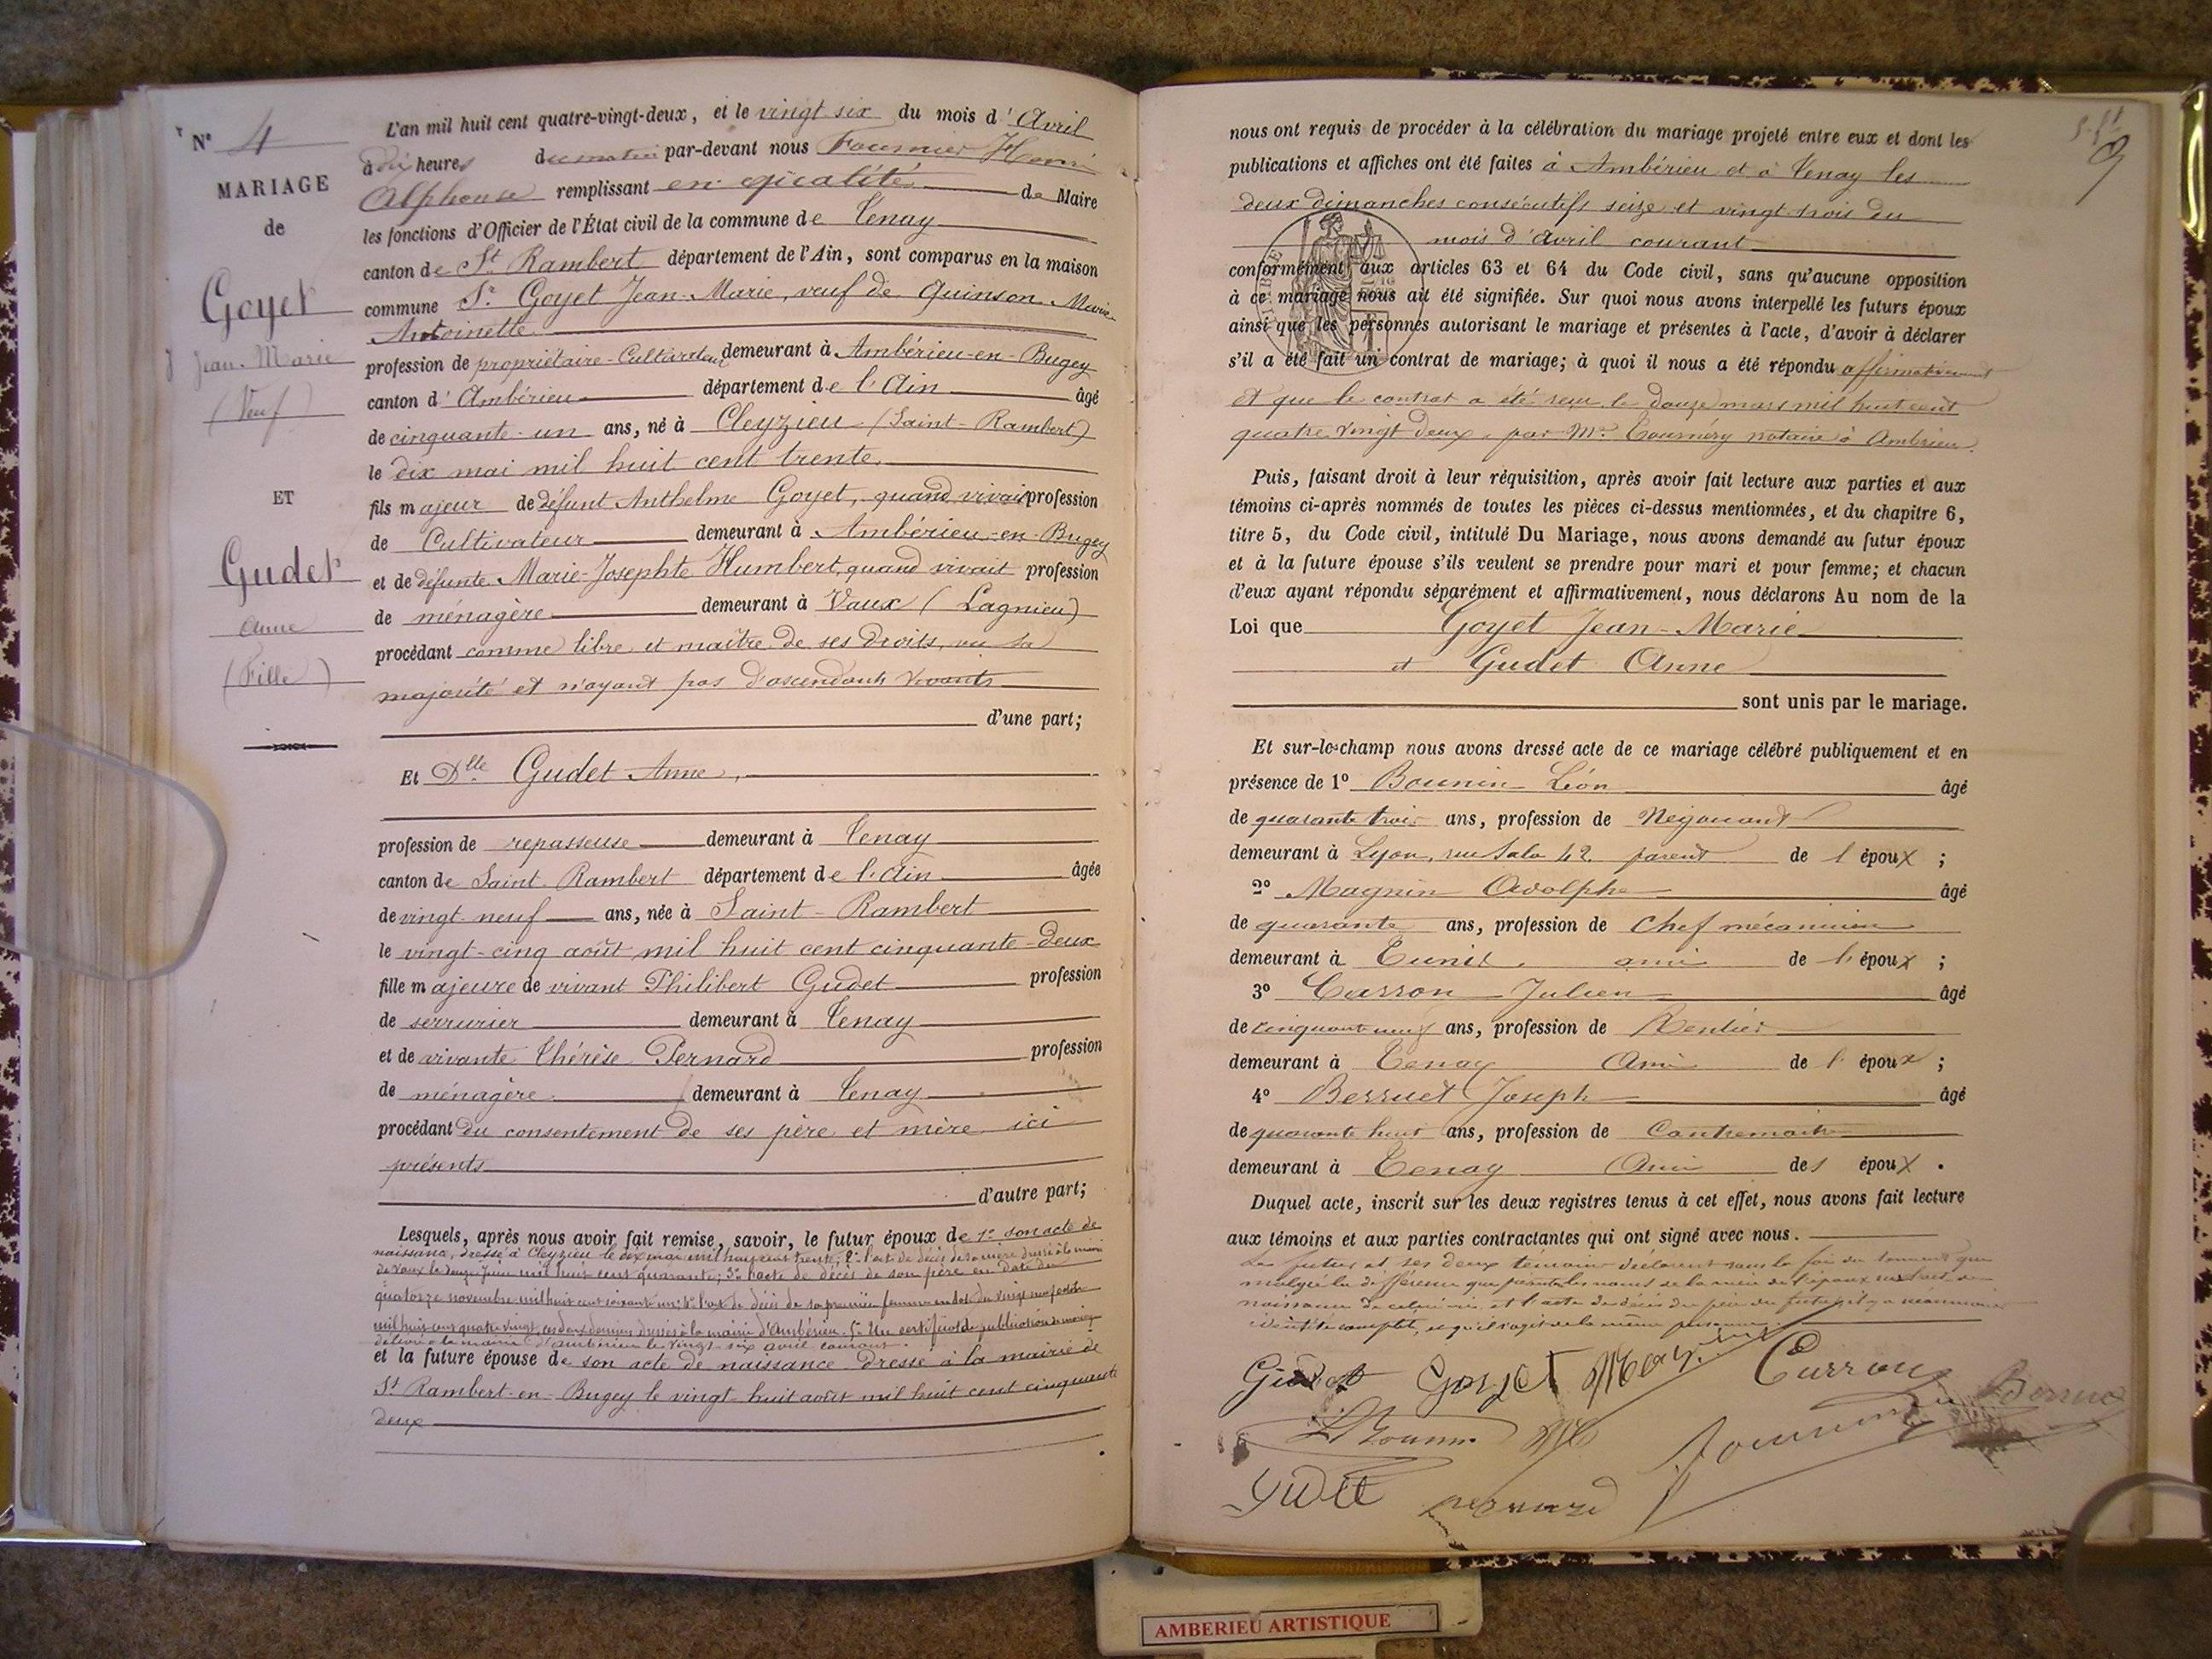 N° 4
MARIAGE
de
Goyet
Jean-Marie
(Veuf)
ET
Gudet
Anne
(Fille)
L'an mil huit cent quatre-vingt-deux, et le vingt six du mois d'Avril
à dix heures du matin par-devant nous Fournier Henri
Alphonse remplissant en qualité de Maire
les fonctions d'Officier de l'État civil de la commune de Tenay
canton de St Rambert département de l'Ain, sont comparus en la maison
commune Sr Goyet Jean-Marie, veuf de Quinson Marie
Antoinette
profession de propriétaire-Cultivateur demeurant à Ambérieu-en-Bugey
canton d'Ambérieu département de l'Ain âgé
de cinquante-un ans, né à Cleyzieu (Saint-Rambert)
le dix mai mil huit cent trente
fils majeur de défunt Anthelme Goyet, quand vivait profession
de Cultivateur demeurant à Ambérieu-en-Bugey
et de défunte Marie-Josephte Humbert, quand vivait profession
de ménagère demeurant à Vaux (Lagnieu)
procédant comme libre et maître de ses droits, vu sa
majorité et n'ayant pas d'ascendants vivants
d'une part;
Et Dlle Gudet Anne,
profession de repasseuse demeurant à Tenay
canton de Saint-Rambert département de l'Ain âgée
de vingt-neuf ans, née à Saint-Rambert
le vingt-cinq août mil huit cent cinquante-deux
fille majeure de vivant Philibert Gudet profession
de serrurier demeurant à Tenay
et de vivante Thérèse Pernard profession
de ménagère demeurant à Tenay
procédant du consentement de ses père et mère ici
présents
d'autre part;
Lesquels, après nous avoir fait remise, savoir, le futur époux de 1° son acte de
naissance, dressé à Cleyzieu le dix mai mil huit cent trente; 2° l'acte de décès de sa mère dressé à la mairie
de Vaux le douze Juin mil huit cent quarante; 3° l'acte de décès de son père en date du
quatorze novembre mil huit cent soixante un; 4° l'acte de décès de sa première femme en date du vingt neuf
mil huit cent quatre vingt, ces deux derniers dressés à la mairie d'Ambérieu; 5° Un certificat de publication de mariage
délivré à la mairie d'Ambérieu le vingt-six avril courant.
et la future épouse de son acte de naissance dressé à la mairie de
St Rambert-en-Bugey le vingt-huit août mil huit cent cinquante
deux
nous ont requis de procéder à la célébration du mariage projeté entre eux et dont les
publications et affiches ont été faites à Ambérieu et à Tenay les
deux dimanches consécutifs seize et vingt-trois du
mois d'Avril courant
conformément aux articles 63 et 64 du Code civil, sans qu'aucune opposition
à ce mariage nous ait été signifiée. Sur quoi nous avons interpellé les futurs époux
ainsi que les personnes autorisant le mariage et présentes à l'acte, d'avoir à déclarer
s'il a été fait un contrat de mariage; à quoi il nous a été répondu affirmativement
et que le contrat a été reçu le douze mars mil huit cent
quatre vingt deux, par Me Tournéry notaire à Ambérieu
Puis, faisant droit à leur réquisition, après avoir fait lecture aux parties et aux
témoins ci-après nommés de toutes les pièces ci-dessus mentionnées, et du chapitre 6,
titre 5, du Code civil, intitulé Du Mariage, nous avons demandé au futur époux
et à la future épouse s'ils veulent se prendre pour mari et pour femme; et chacun
d'eux ayant répondu séparément et affirmativement, nous déclarons Au nom de la
Loi que Goyet Jean-Marie
et Gudet Anne
sont unis par le mariage.
Et sur-le-champ nous avons dressé acte de ce mariage célébré publiquement et en
présence de 1° Bounin Léon âgé
de quarante trois ans, profession de Négociant
demeurant à Lyon, rue Sala 42 parent de l'époux;
2° Magnin Adolphe âgé
de quarante ans, profession de Chef mécanicien
demeurant à ami de l'époux;
3° Carron Julien âgé
de cinquante neuf ans, profession de Rentier
demeurant à Tenay Ami de l'époux;
4° Berruet Joseph âgé
de quarante huit ans, profession de Contremaître
demeurant à Tenay Ami des époux.
Duquel acte, inscrit sur les deux registres tenus à cet effet, nous avons fait lecture
aux témoins et aux parties contractantes qui ont signé avec nous.
Le futur et ses deux témoins déclarent sous la foi du serment que
malgré la différence que les noms de la mère de l'époux
naissance de celui-ci et l'acte de décès du père du futur il y a néanmoins
identité complète, et qu'il s'agit de la même personne
Gudet Goyet Carron Berruet
Bounin Fournier
Gudet pernard
AMBERIEU ARTISTIQUE